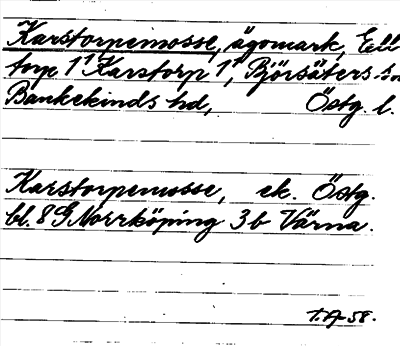 Karstorpemosse, ägomark, Ell
torp 1¹ Karstorp 1¹, Björsäters sn
Bankekinds hd, Östg. l.
Karstorpemosse, ek. Östg.
bl. 8 G Norrköping 3b Värna.
58.